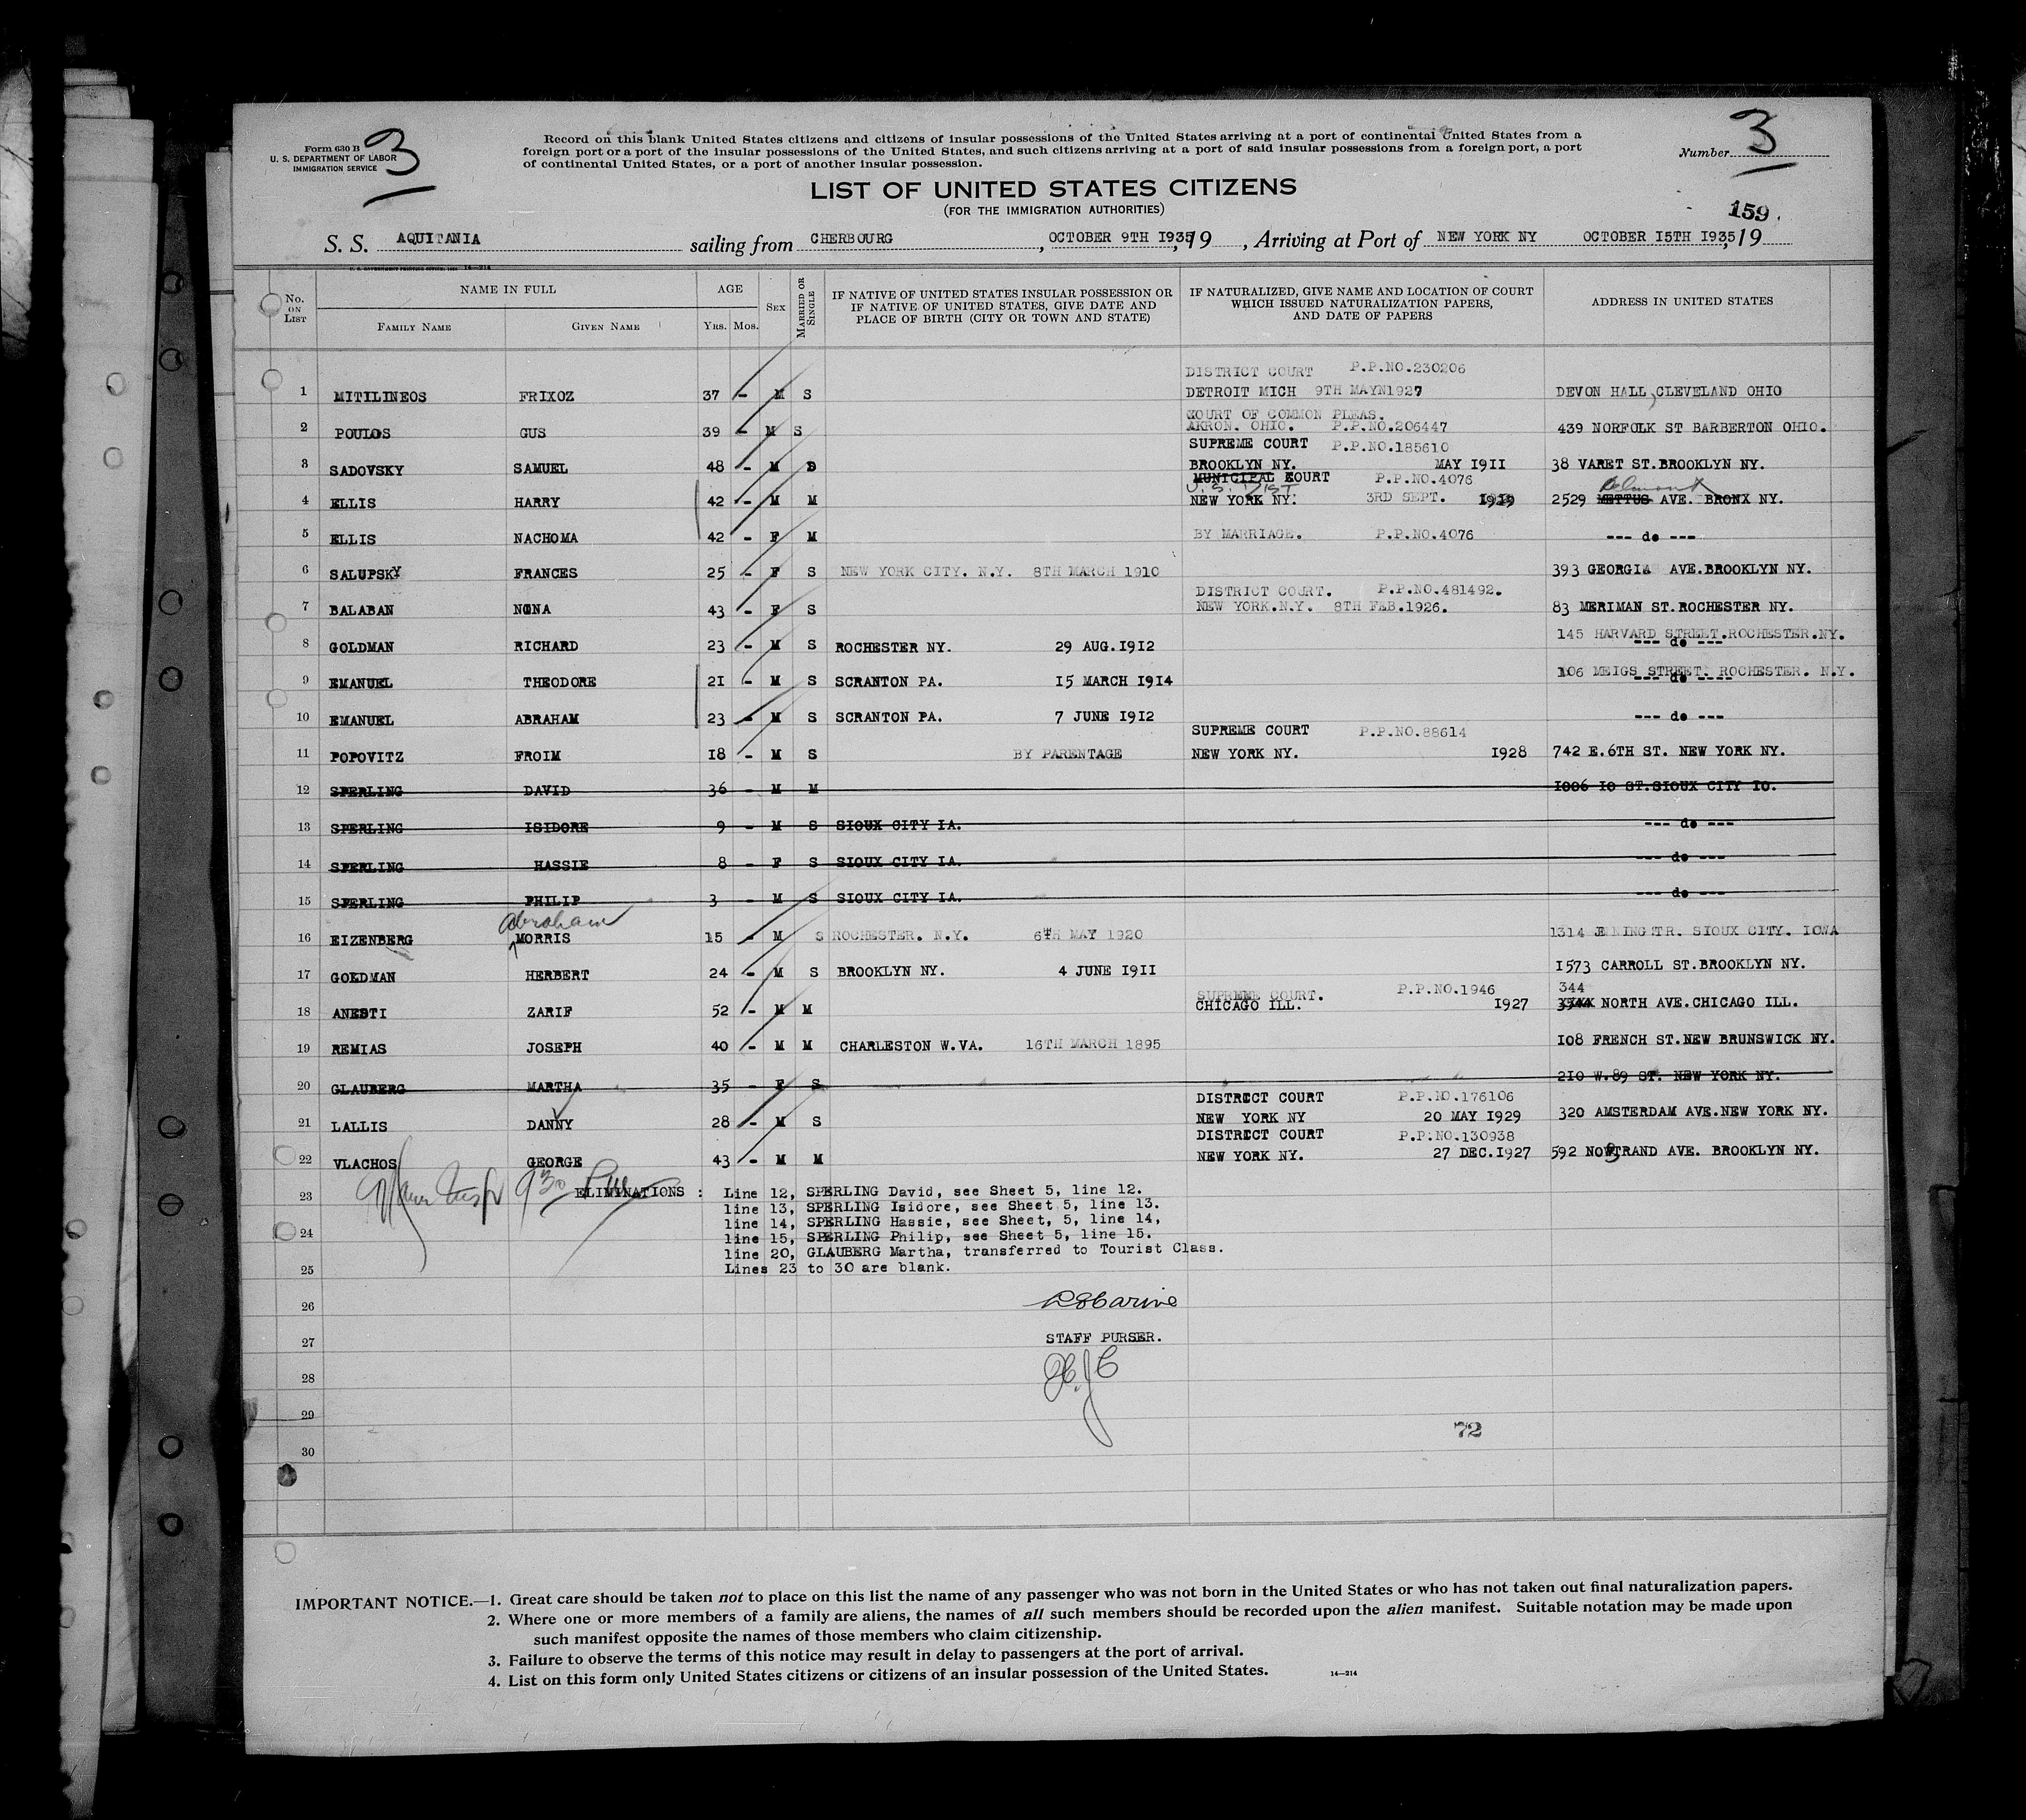 Form 630 B
U. S. DEPARTMENT OF LABOR
IMMIGRATION SERVICE
3
Record on this blank United States citizens and citizens of insular possessions of the United States arriving at a port of continental United States from a
foreign port or a port of the insular possessions of the United States, and such citizens arriving at a port of said insular possessions from a foreign port, a port
of continental United States, or a port of another insular possession.
Number 3
LIST OF UNITED STATES CITIZENS
(FOR THE IMMIGRATION AUTHORITIES)
159.
S. S. AQUITANIA sailing from CHERBOURG, OCTOBER 9TH 1935, 19, Arriving at Port of NEW YORK NY OCTOBER 15TH 1935, 19
14—214
No. ON LIST NAME IN FULL AGE SEX MARRIED OR SINGLE IF NATIVE OF UNITED STATES INSULAR POSSESSION OR IF NATIVE OF UNITED STATES, GIVE DATE AND PLACE OF BIRTH (CITY OR TOWN AND STATE) IF NATURALIZED, GIVE NAME AND LOCATION OF COURT WHICH ISSUED NATURALIZATION PAPERS, AND DATE OF PAPERS ADDRESS IN UNITED STATES
FAMILY NAME GIVEN NAME YRS. MOS.
DISTRICT COURT P.P.NO.230206
1 MITILINEOS FRIXOZ 37 - M S DETROIT MICH 9TH MAYN1927 DEVON HALL,CLEVELAND OHIO
COURT OF COMMON PLEAS.
2 POULOS GUS 39 - M S AKRON. OHIO. P.P.NO.206447 439 NORFOLK ST BARBERTON OHIO.
SUPREME COURT P.P.NO.185610
3 SADOVSKY SAMUEL 48 - M BROOKLYN NY. MAY 1911 38 VARET ST.BROOKLYN NY.
MUNICIPAL COURT P.P.NO.4076
U.S. DIST Belmont
4 ELLIS HARRY 42 - M M NEW YORK NY. 3RD SEPT. 1929 2529 METTUS AVE. BRONX NY.
5 ELLIS NACHOMA 42 - F M BY MARRIAGE. P.P.NO.4076 --- do ---
6 SALUPSKY FRANCES 25 - F S NEW YORK CITY. N.Y. 8TH MARCH 1910 393 GEORGIA AVE.BROOKLYN NY.
DISTRICT COURT. P.P.NO.481492.
7 BALABAN NONA 43 - F S NEW YORK.N.Y. 8TH FEB.1926. 83 MERIMAN ST.ROCHESTER NY.
145 HARVARD STREET.ROCHESTER.NY.
8 GOLDMAN RICHARD 23 - M S ROCHESTER NY. 29 AUG.1912 --- do ---
106 MEIGS STREET. ROCHESTER. N.Y.
9 EMANUEL THEODORE 21 - M S SCRANTON PA. 15 MARCH 1914 --- do ----
10 EMANUEL ABRAHAM 23 - M S SCRANTON PA. 7 JUNE 1912 --- do ---
SUPREME COURT P.P.NO.88614
11 POPOVITZ FROIM 18 - M S BY PARENTAGE NEW YORK NY. 1928 742 E.6TH ST. NEW YORK NY.
12 SPERLING DAVID 36 - M M 1006 10 ST.SIOUX CITY IO.
13 SPERLING ISIDORE 9 - M S SIOUX CITY IA. --- do ---
14 SPERLING HASSIE 8 - F S SIOUX CITY IA. --- do ---
15 SPERLING PHILIP 3 - M S SIOUX CITY IA. --- do ---
Abraham
16 EIZENBERG MORRIS 15 - M S ROCHESTER. N.Y. 6TH MAY 1920 1314 SIOUX CITY. IOWA
17 GOLDMAN HERBERT 24 - M S BROOKLYN NY. 4 JUNE 1911 1573 CARROLL ST.BROOKLYN NY.
SUPREME COURT. P.P.NO.1946 344
18 ANESTI ZARIF 52 - M M CHICAGO ILL. 1927 NORTH AVE.CHICAGO ILL.
19 REMIAS JOSEPH 40 - M M CHARLESTON W.VA. 16TH MARCH 1895 108 FRENCH ST.NEW BRUNSWICK NY.
20 GLAUBERG MARTHA 35 - F S 210 W.89 ST. NEW YORK NY.
DISTRICT COURT P.P.NO.176106
21 LALLIS DANNY 28 - M S NEW YORK NY 20 MAY 1929 320 AMSTERDAM AVE.NEW YORK NY.
DISTRICT COURT P.P.NO.130938
22 VLACHOS GEORGE 43 - M M NEW YORK NY. 27 DEC.1927 592 NOSTRAND AVE. BROOKLYN NY.
23 930 ELIMINATIONS : Line 12, SPERLING David, see Sheet 5, line 12.
line 13, SPERLING Isidore, see Sheet 5, line 13.
line 14, SPERLING Hassie, see Sheet, 5, line 14,
24 line 15, SPERLING Philip, see Sheet 5, line 15.
line 20, GLAUBERG Martha, transferred to Tourist Class.
25 Lines 23 to 30 are blank.
26
27 STAFF PURSER.
28
29
72
30
IMPORTANT NOTICE.—1. Great care should be taken not to place on this list the name of any passenger who was not born in the United States or who has not taken out final naturalization papers.
2. Where one or more members of a family are aliens, the names of all such members should be recorded upon the alien manifest. Suitable notation may be made upon
such manifest opposite the names of those members who claim citizenship.
3. Failure to observe the terms of this notice may result in delay to passengers at the port of arrival.
4. List on this form only United States citizens or citizens of an insular possession of the United States. 14—214